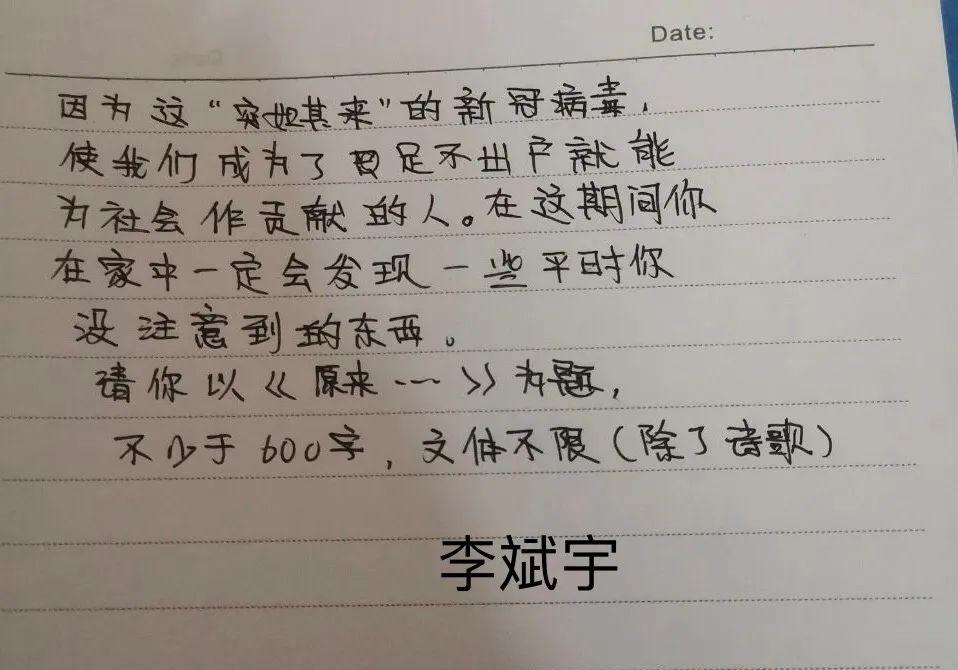 Date:
因为这“突如其来”的新冠病毒，
使我们成为了足不出户就能
为社会作贡献的人。在这期间你
在家中一定会发现一些平时你
没注意到的东西。
请你以《原来…》为题，
不少于600字，文体不限（除了诗歌）
李斌宇